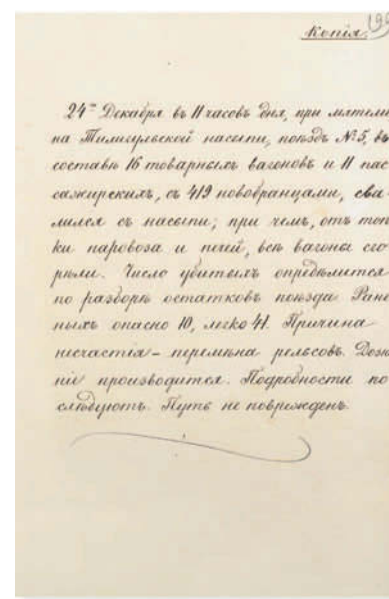 Копія.
24го Декабря въ 11 часовъ дня, при мятели
на Тилигульской насыпи, поѣздъ №5, въ
составѣ 16 товарныхъ вагоновъ и 11 пас
сажирскихъ, съ 419 новобранцами, сва
лился съ насыпи; при чемъ, отъ топ
ки паровоза и печей, всѣ вагоны сго
рѣли. Число убитыхъ опредѣлится
по разборѣ остатковъ поѣзда Ране
ныхъ опасно 10, легко 41. Причина
несчастія - перемѣна рельсовъ. Дозн
ніе производится. Подробности по
слѣдуютъ. Путь не поврежденъ.